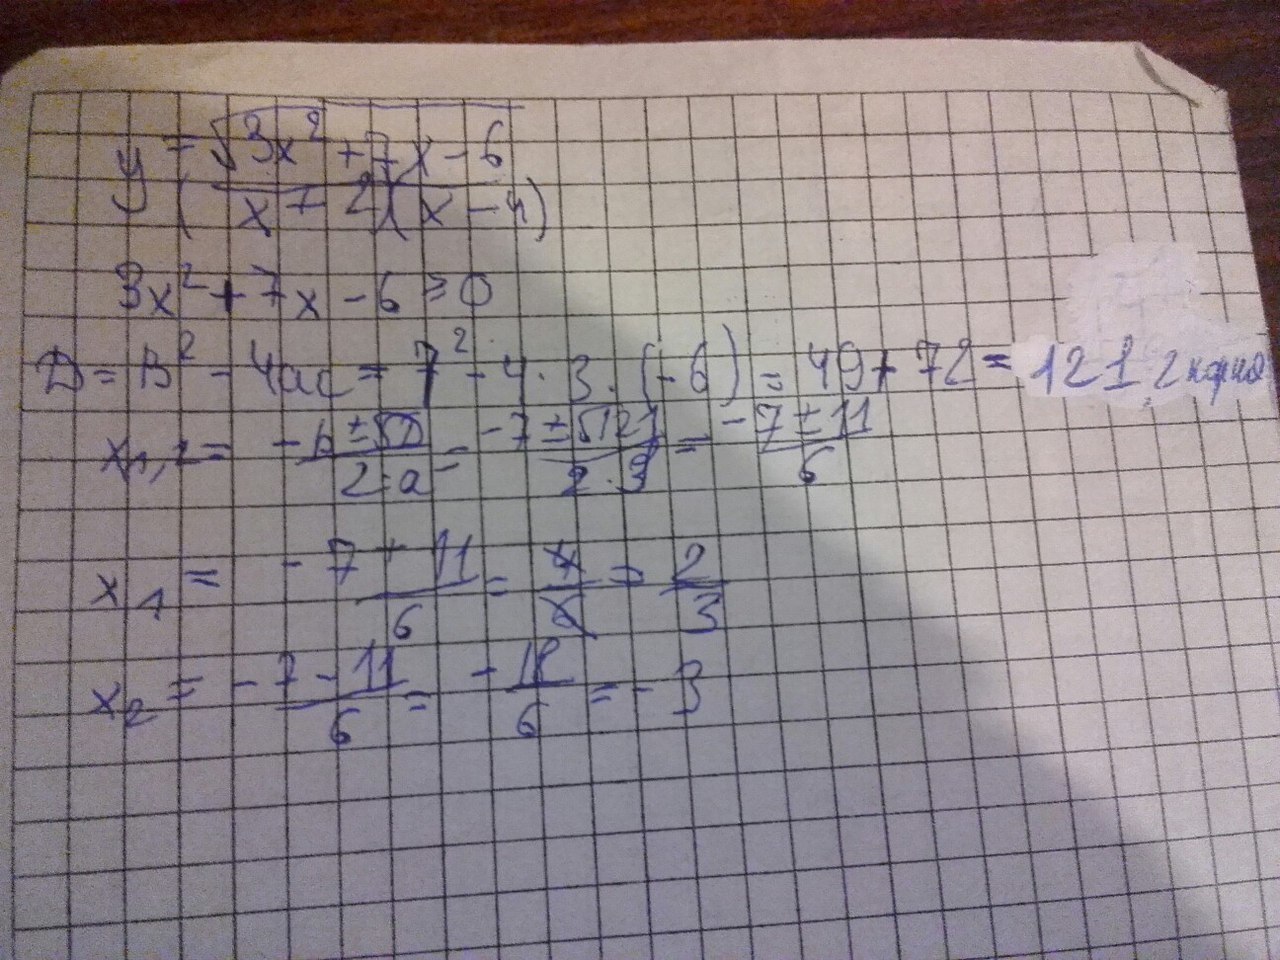 y = √(3x² + 7x - 6)
(x + 2)(x - 4)
3x² + 7x - 6 ≥ 0
D = B² - 4ac = 7² - 4 · 3 · (-6) = 49 + 72 = 121, 2 корня
x₁,₂ = (-b ± √D)/(2·a) = (-7 ± √121)/(2 · 3) = (-7 ± 11)/6
x₁ = (-7 + 11)/6 = 4/6 = 2/3
x₂ = (-7 - 11)/6 = -18/6 = -3